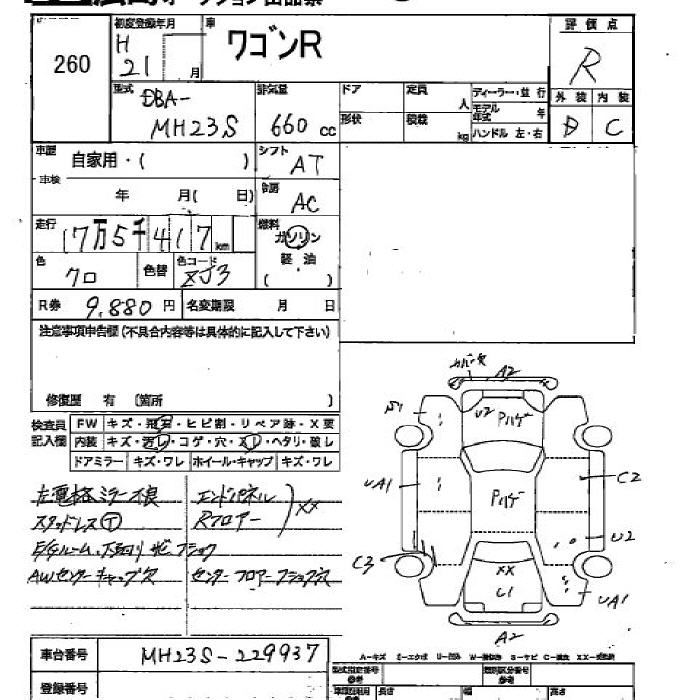 260
初度登録年月 H 21 月
車 ワゴンR
評価点 R
型式 DBA-
MH23S
排気量 660 cc
ドア
定員 人
ディーラー・並行
モデル年式 年
形状
積載 kg
ハンドル 左・右
外装 内装
D C
車歴 自家用・( )
シフト AT
車検 年 月( 日)
冷房 AC
走行 17万5千417km
燃料 ガソリン
軽油
( )
色 クロ
色替
色コード ZJ3
R券 9,880 円
名変期限 月 日
注意事項申告欄(不具合内容等は具体的に記入して下さい)
修復歴 有 〔箇所 〕
検査員
記入欄
FW キズ・飛石・ヒビ割・リペア跡・X要
内装 キズ・汚レ・コゲ・穴・スレ・ヘタリ・破レ
ドアミラー キズ・ワレ ホイール・キャップ キズ・ワレ
左電格ミラー不良 エンドパネル
スタッドレスT Rフロアー XX
E/Gルーム、下廻り サビ
AWセンターキャップ欠 センターフロアー
A2
S1
U2 Pハゲ
UA1
C2
Pハゲ
U2
C3
XX
C1
UA1
A2
車台番号 MH23S-229937
登録番号
型式指定番号
類別区分番号
長さ 幅 高さ